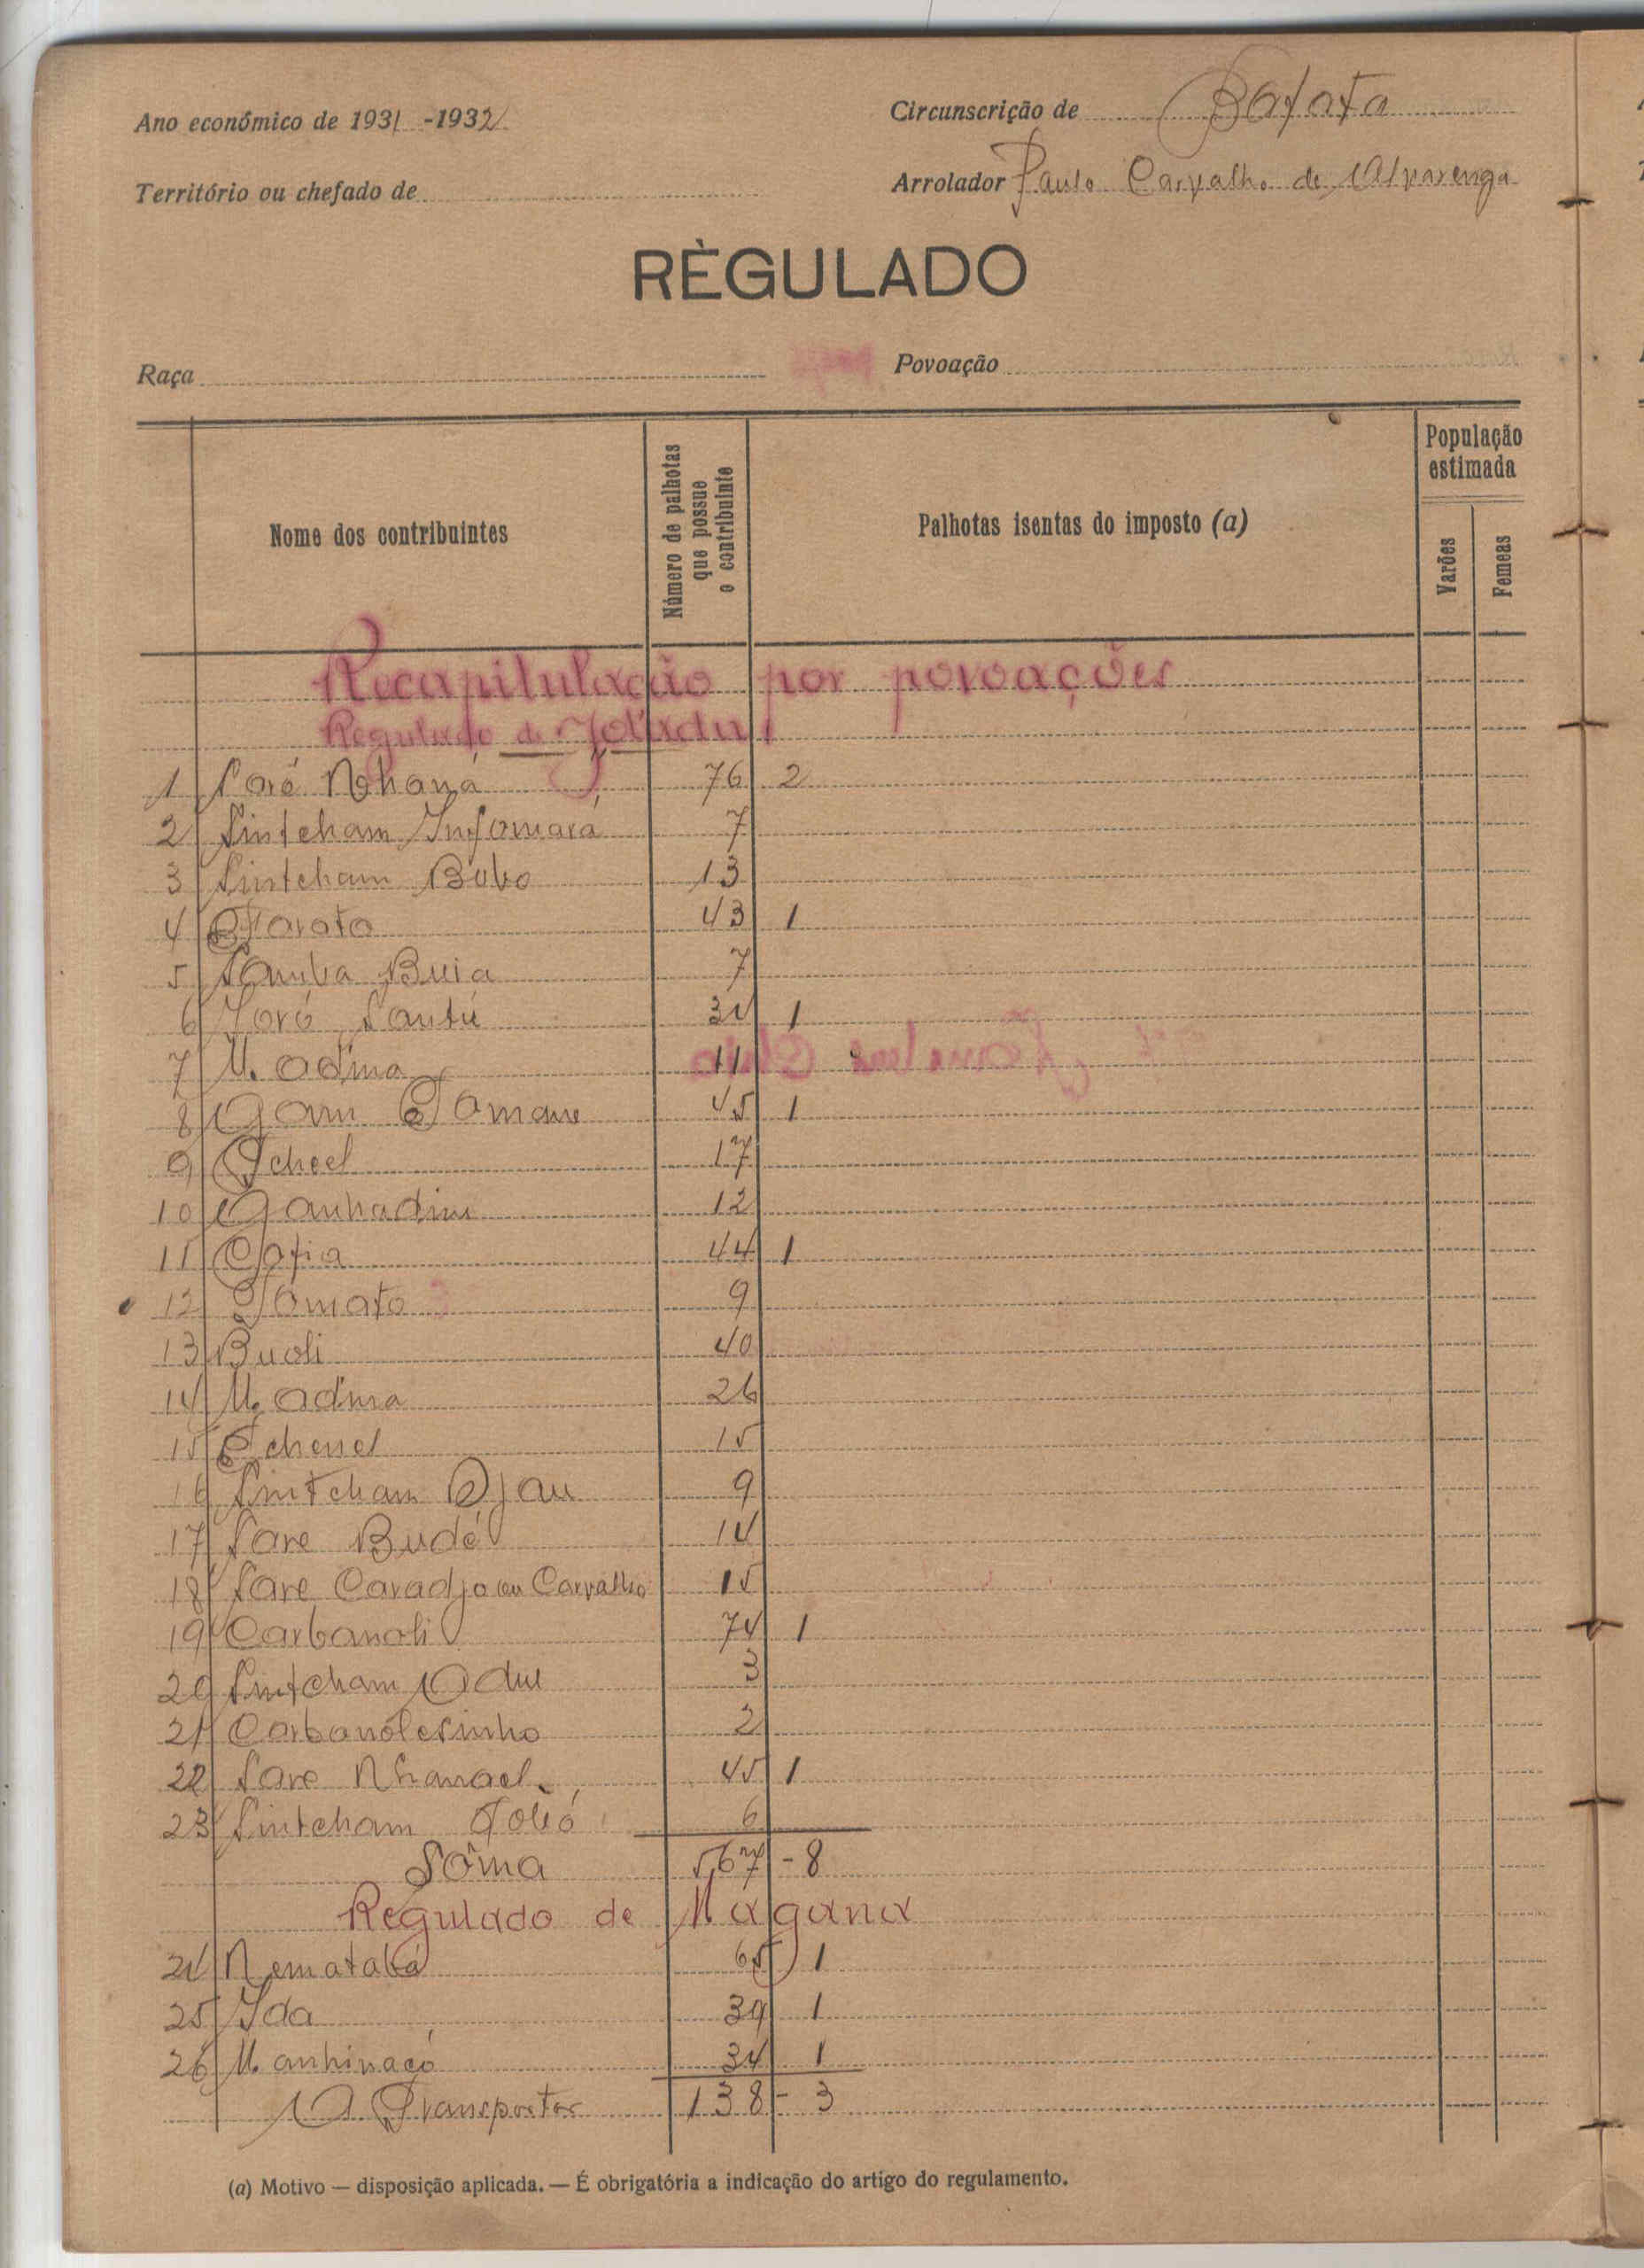 Ano económico de 1931-1932
Circunscrição de Bafata
Território ou chefado de
Arrolador Paulo Carvalho de Alvarenga
RÈGULADO
Raça
Povoação
Nome dos contribuintes
Número de palhotas que possue o contribuinte
Palhotas isentas do imposto (a)
População estimada
Varões
Femeas
Recapitulação por povoações
Regulado de Joladu
1 Saré Nhaná 76 2
2 Sintcham Infamará 7
3 Sintcham Bobo 13
4 43 1
5 Samba Buia 7
6 Joró Santú 34 1
7 Madina 11
8 45 1
9 17
10 Ganhadim 12
11 Gafia 44 1
12 9
13 Buoli 40
14 Madina 26
15 15
16 Sintcham Djau 9
17 Sare Budé 14
18 Sare Caradjo ou Carvalho 15
19 Carbanoli 74 1
20 Sintcham 3
21 Carbanolesinho 2
22 Sare Nhamael 45 1
23 Sintcham 6
Sôma 567 - 8
Regulado de Mágana
24 Nematabá 65 1
25 Ida 39 1
26 Manhinacó 34 1
A Transportar 138 - 3
(a) Motivo — disposição aplicada. — É obrigatória a indicação do artigo do regulamento.